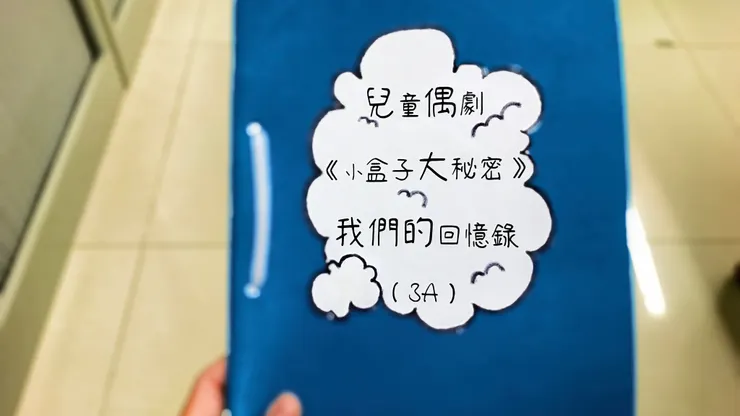 兒童偶劇
《小盒子大秘密》
我們的回憶錄
(3A)